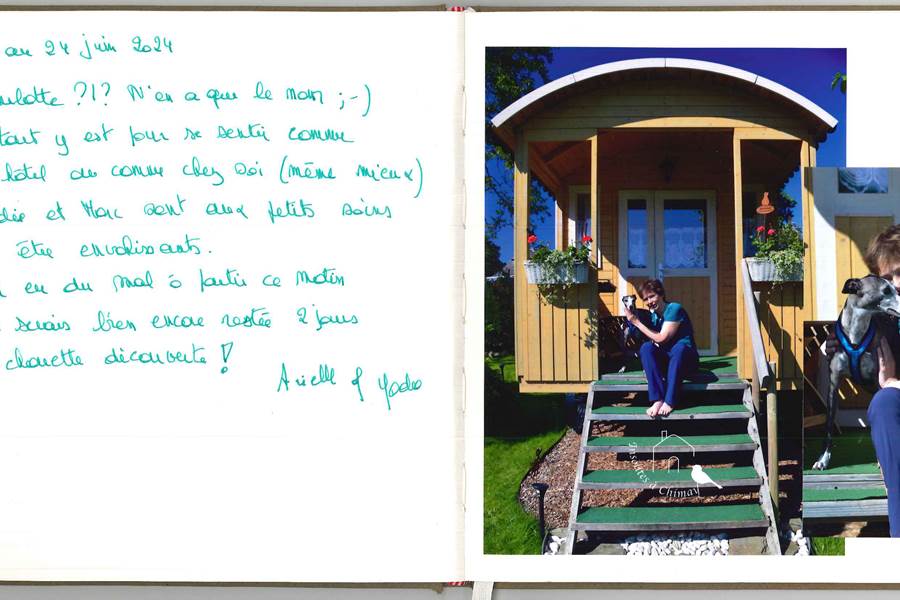 au 24 juin 2024
ulotte ?!? N'en a que le nom ;-)
tout y est pour se sentir comme
hôtel ou comme chez soi (même mieux)
et Marc sont aux petits soins
être envahissants.
eu du mal à partir ce matin
serais bien encore restée 2 jours
chouette découverte !
Arielle & Yoda
Insolites à Chimay